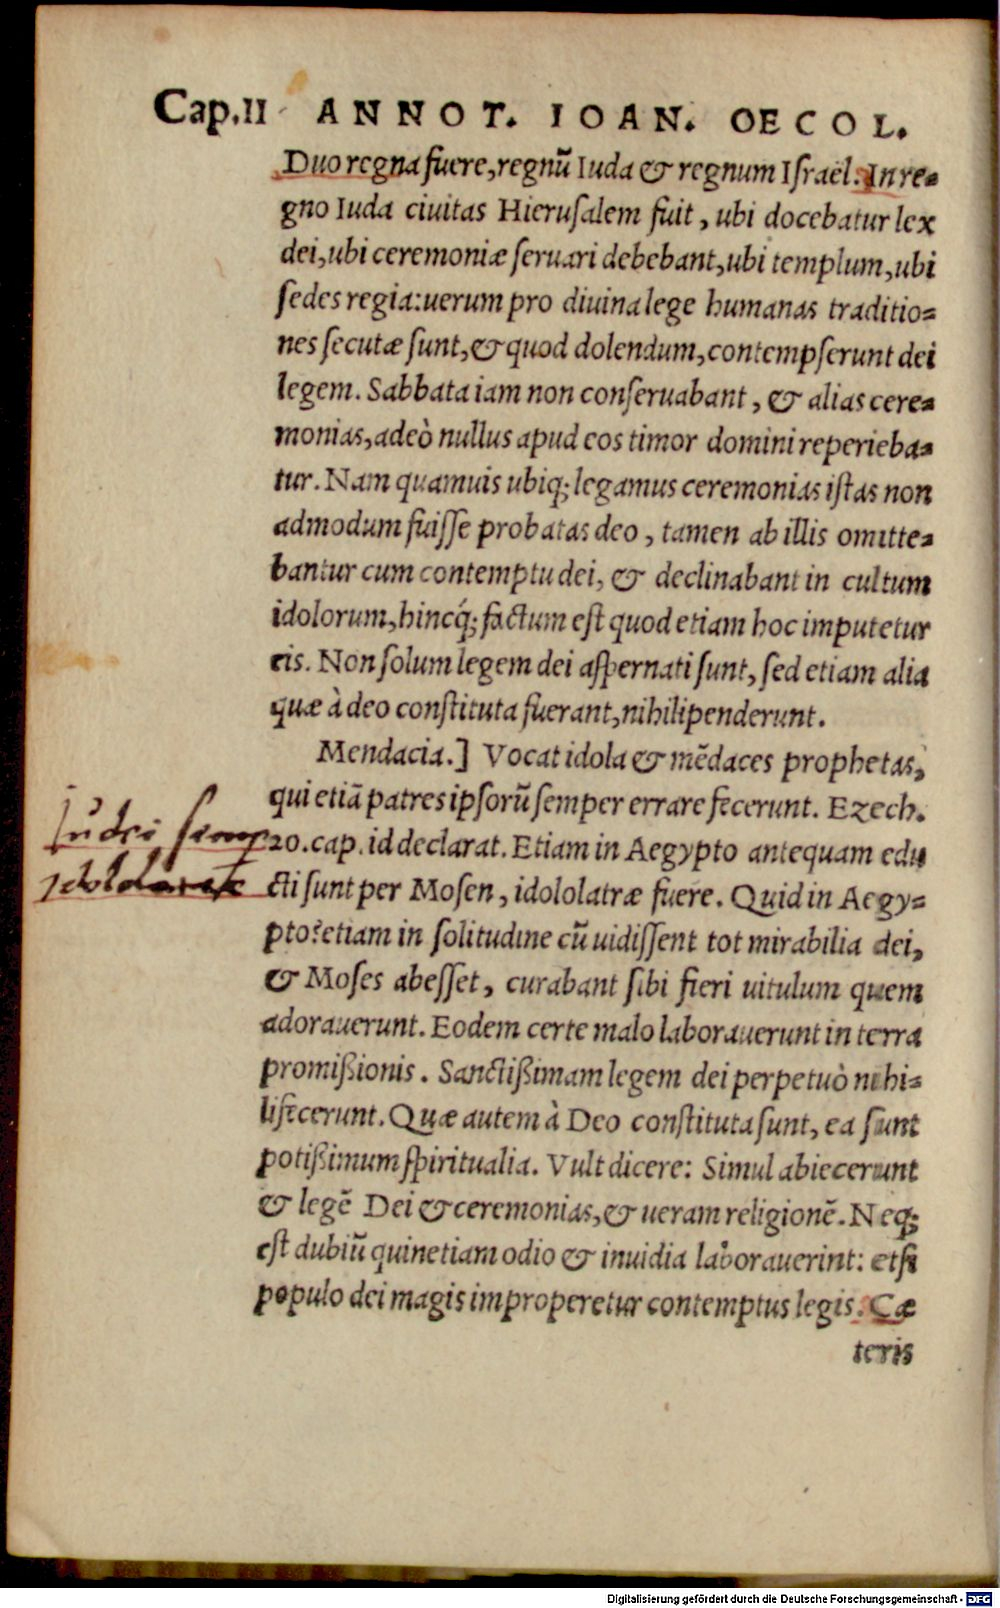 Cap.II ANNOT. IOAN. OECOL.
Duo regna fuere, regnũ Iuda & regnum Iſrael. In re=
gno Iuda ciuitas Hieruſalem fuit, ubi docebatur lex
dei, ubi ceremoniæ ſeruari debebant, ubi templum, ubi
ſedes regia: uerum pro diuina lege humanas traditio=
nes ſecutæ ſunt, & quod dolendum, contempſerunt dei
legem. Sabbata iam non conſeruabant, & alias cere=
monias, adeò nullus apud eos timor domini reperieba=
tur. Nam quamuis ubiq; legamus ceremonias iſtas non
admodum fuiſſe probatas deo, tamen ab illis omitte=
bantur cum contemptu dei, & declinabant in cultum
idolorum, hincq́; factum eſt quod etiam hoc imputetur
eis. Non ſolum legem dei aſpernati ſunt, ſed etiam alia
quæ à deo conſtituta fuerant, nihilipenderunt.
Mendacia.] Vocat idola & mẽdaces prophetas,
qui etiã patres ipſorũ ſemper errare fecerunt. Ezech.
Iudei semp
20. cap. id declarat. Etiam in Aegypto antequam edu
cti ſunt per Moſen, idololatræ fuere. Quid in Aegy=
pto? etiam in ſolitudine cũ uidiſſent tot mirabilia dei,
& Moſes abeſſet, curabant ſibi fieri uitulum quem
adorauerunt. Eodem certe malo laborauerunt in terra
promißionis. Sanctißimam legem dei perpetuò nihi=
lifecerunt. Quæ autem à Deo conſtituta ſunt, ea ſunt
potißimum ſpiritualia. Vult dicere: Simul abiecerunt
& legẽ Dei & ceremonias, & ueram religionẽ. Neq;
eſt dubiũ quin etiam odio & inuidia laborauerint: etſi
populo dei magis improperetur contemptus legis. Cæ
teris
Digitalisierung gefördert durch die Deutsche Forschungsgemeinschaft - DFG